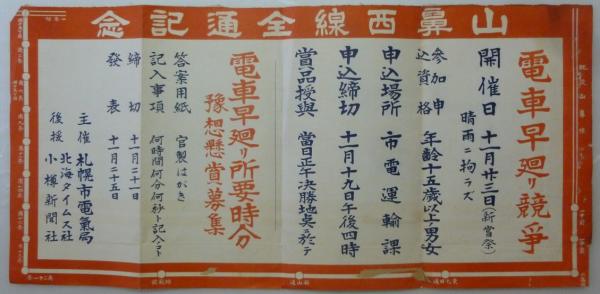 山鼻西線全通記念
電車早廻リ競爭
開催日 十一月廿三日(新嘗祭)
晴雨ニ拘ラズ
参加申込資格 年齡十五歳以上男女
申込場所 市電運輸課
申込締切 十一月十九日午後四時
賞品授與 當日正午決勝地点ニ於テ
電車早廻リ所要時分
豫想懸賞募集
答案用紙 官製はがき
記入事項 何時間何分何秒ト記入ノコト
締切 十一月二十一日
發表 十一月二十五日
主催 札幌市電氣局
後援 北海タイムス社
小樽新聞社